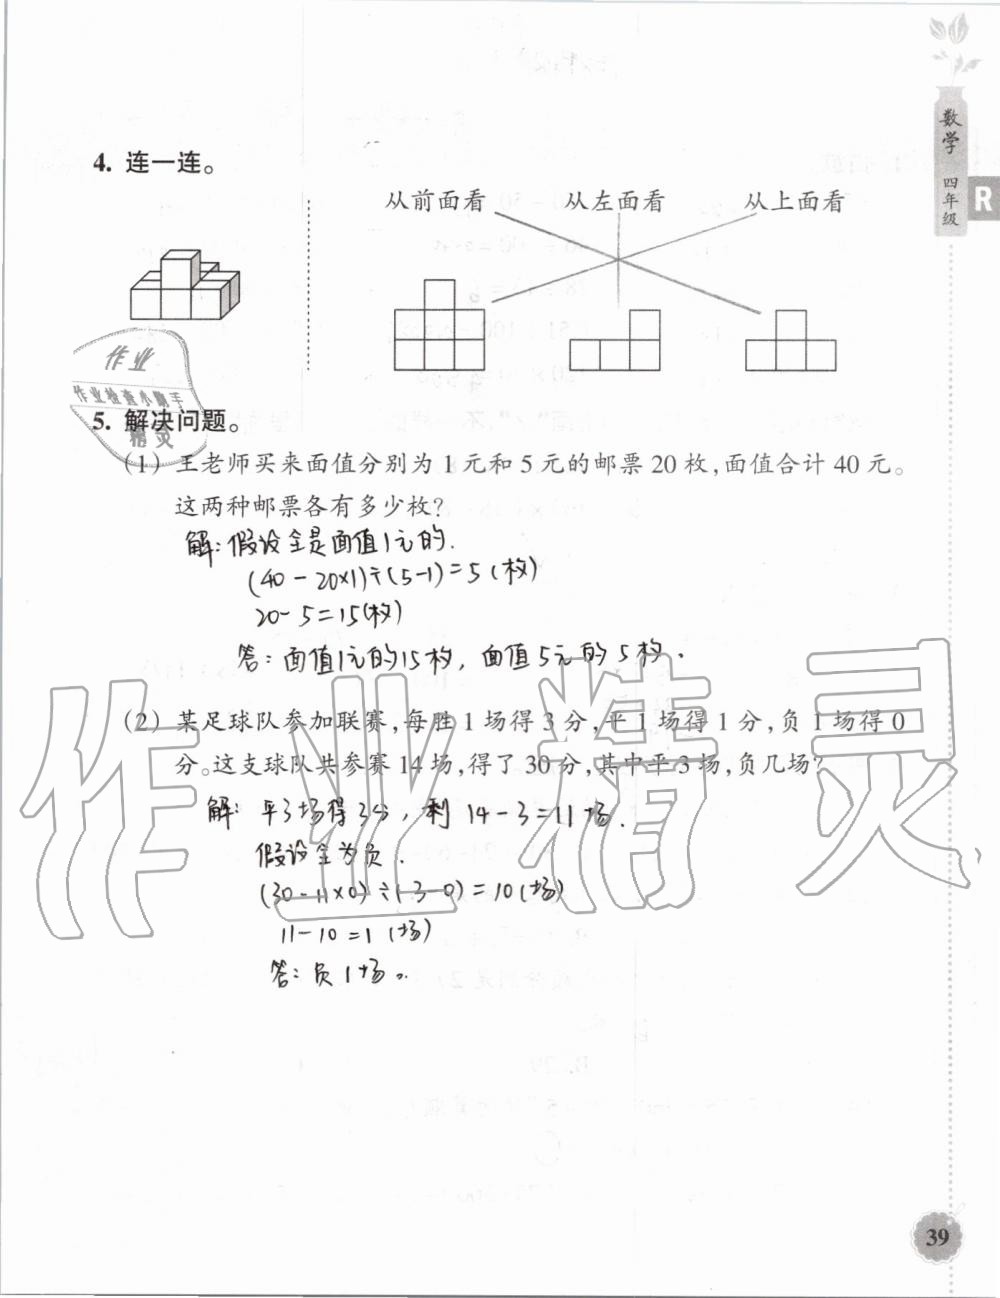 数学 四年级
R
4. 连一连。
从前面看 从左面看 从上面看
作业
作业检查小助手
精灵
5. 解决问题。
(1) 王老师买来面值分别为1元和5元的邮票20枚,面值合计40元。
这两种邮票各有多少枚?
解:假设全是面值1元的.
(40-20×1)÷(5-1)=5(枚)
20-5=15(枚)
答:面值1元的15枚,面值5元的5枚.
(2) 某足球队参加联赛,每胜1场得3分,平1场得1分,负1场得0
分。这支球队共参赛14场,得了30分,其中平3场,负几场?
解:平3场得3分,剩14-3=11场.
假设全为负.
(30-11×0)÷(3-0)=10(场)
11-10=1(场)
答:负1场。
作业精灵
39